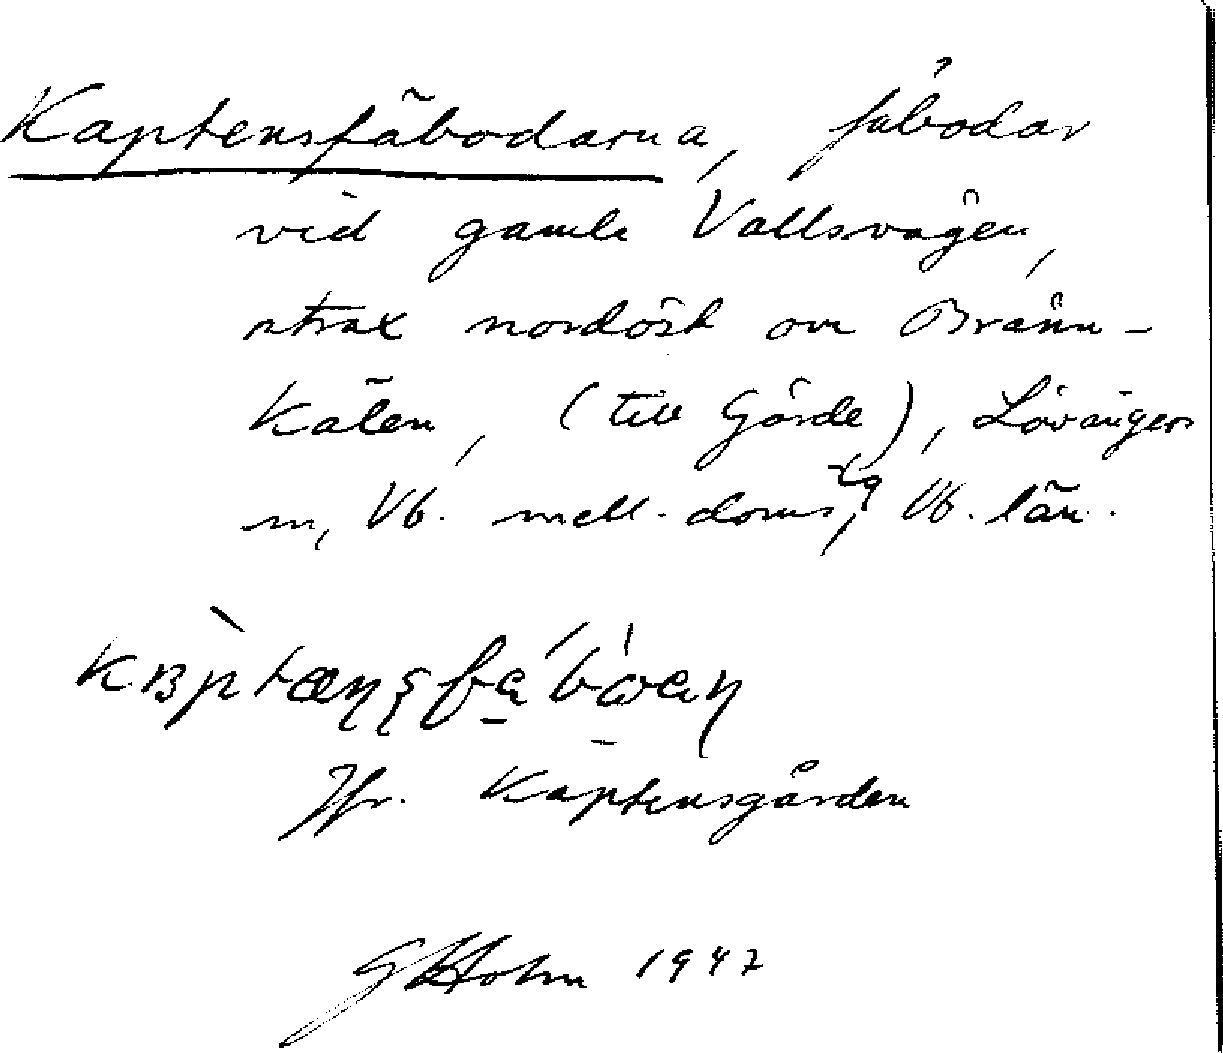 Kaptensfäbodarna, fäbodar
vid gamla Vallsvägen,
strax nordöst om Bränn-
kälen, (till Gärde), Lövångers
sn, Vb. mell. doms, Vb. län.
Jfr. Kaptensgården
Holm 1947